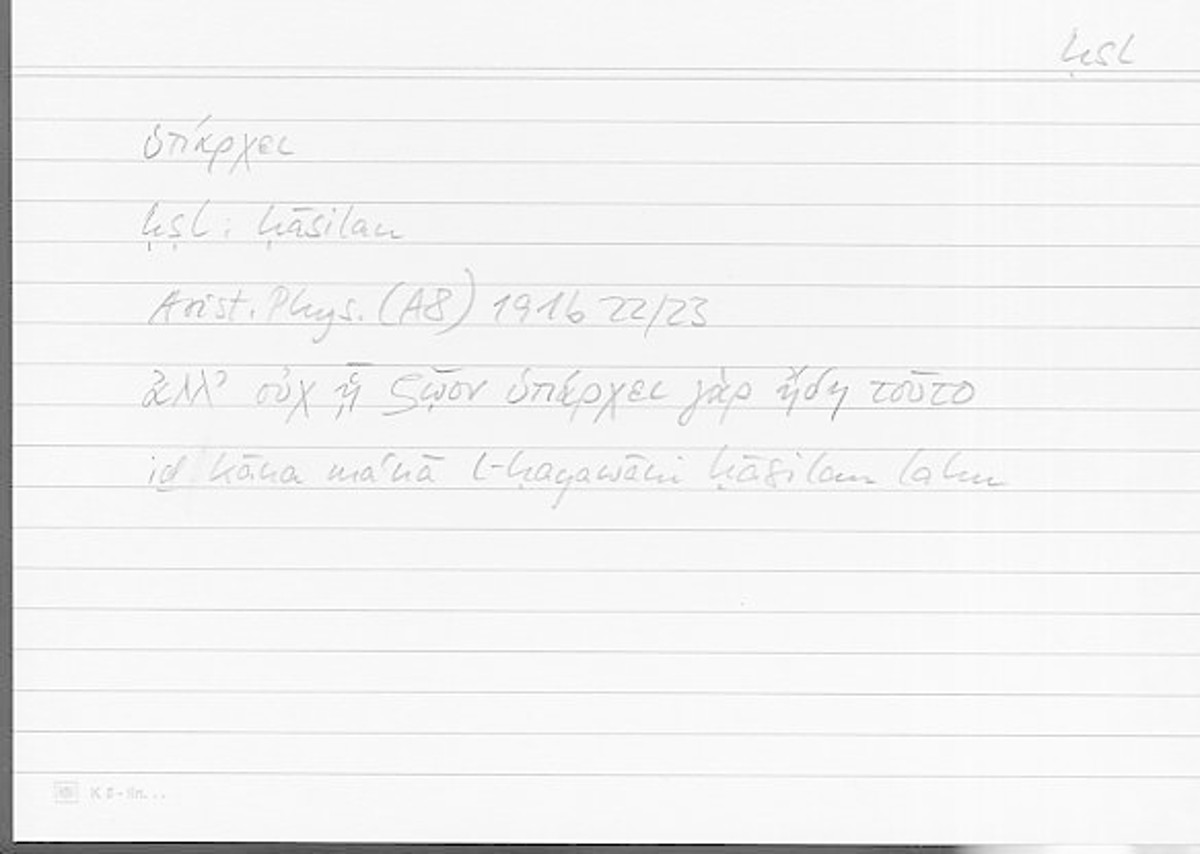 ḥsl
ὑπάρχει
ḥṣl: ḥāsilan
Arist. Phys. (A8) 191b 22/23
ἀλλ' οὐχ ᾗ ζῷον ὑπάρχει γὰρ ἤδη τοῦτο
iḏ kāna maʿnā l-ḥayawāni ḥāsilan lahu